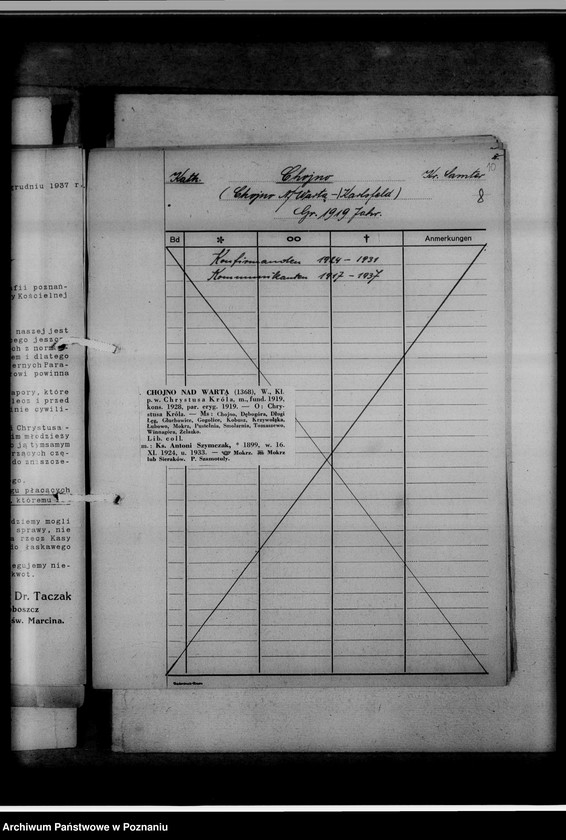 grudniu 1937 r.
afii poznań-
y Kościelnej
naszej jest
nego jeszcze
ch z norma-
em i dlatego
ernych Para-
rowi powinna
apory, które
ieos i przed
inie cywili-
Chrystusa-
im młodzieży
o ją tymsamym
rzących czę-
do zniszcze-
ego.
gu płacących
, któremu
dziemy mogli
sprawy, nie
a rzecz Kasy
do łaskawego
egujemy nie-
kwot.
Dr. Taczak
oboszcz
św. Marcina.
10
Kath. Chojno Kr. Samter
(Chojno n/Warta - (Karlsfeld) 8
Gr. 1919 Jahr.
Bd * ∞ † Anmerkungen
Konfirmanden 1924 - 1931
Kommunikanten 1917 - 1937
CHOJNO NAD WARTĄ (1368), W., Kl.
p. w. Chrystusa Króla, m., fund. 1919,
kons. 1928, par. eryg. 1919. — O: Chry-
stusa Króla. — Ms: Chojno, Dębogóra, Długi
Ług, Głuchowiec, Gogolice, Kobusz, Krzywołąka,
Lubowo, Mokrz, Pustelnia, Smolarnia, Tomaszewo,
Winnagóra, Żelazko.
Lib. coll.
m.: Ks. Antoni Szymczak, * 1899, w. 16.
XI. 1924, u. 1933. — Mokrz. Mokrz
lub Sieraków. P. Szamotuły.
Archiwum Państwowe w Poznaniu